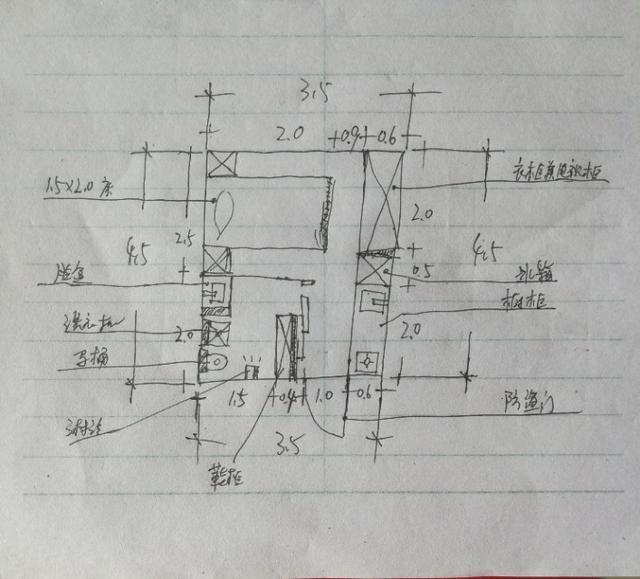 3.5
2.0 +0.9+0.6
1.5×2.0 床
衣柜兼电视柜
2.0
2.5
4.5
4.5
脸盆
0.5
冰箱
橱柜
洗衣机
2.0
2.0
马桶
1.5 +0.4+ 1.0 0.6
防盗门
3.5
鞋柜